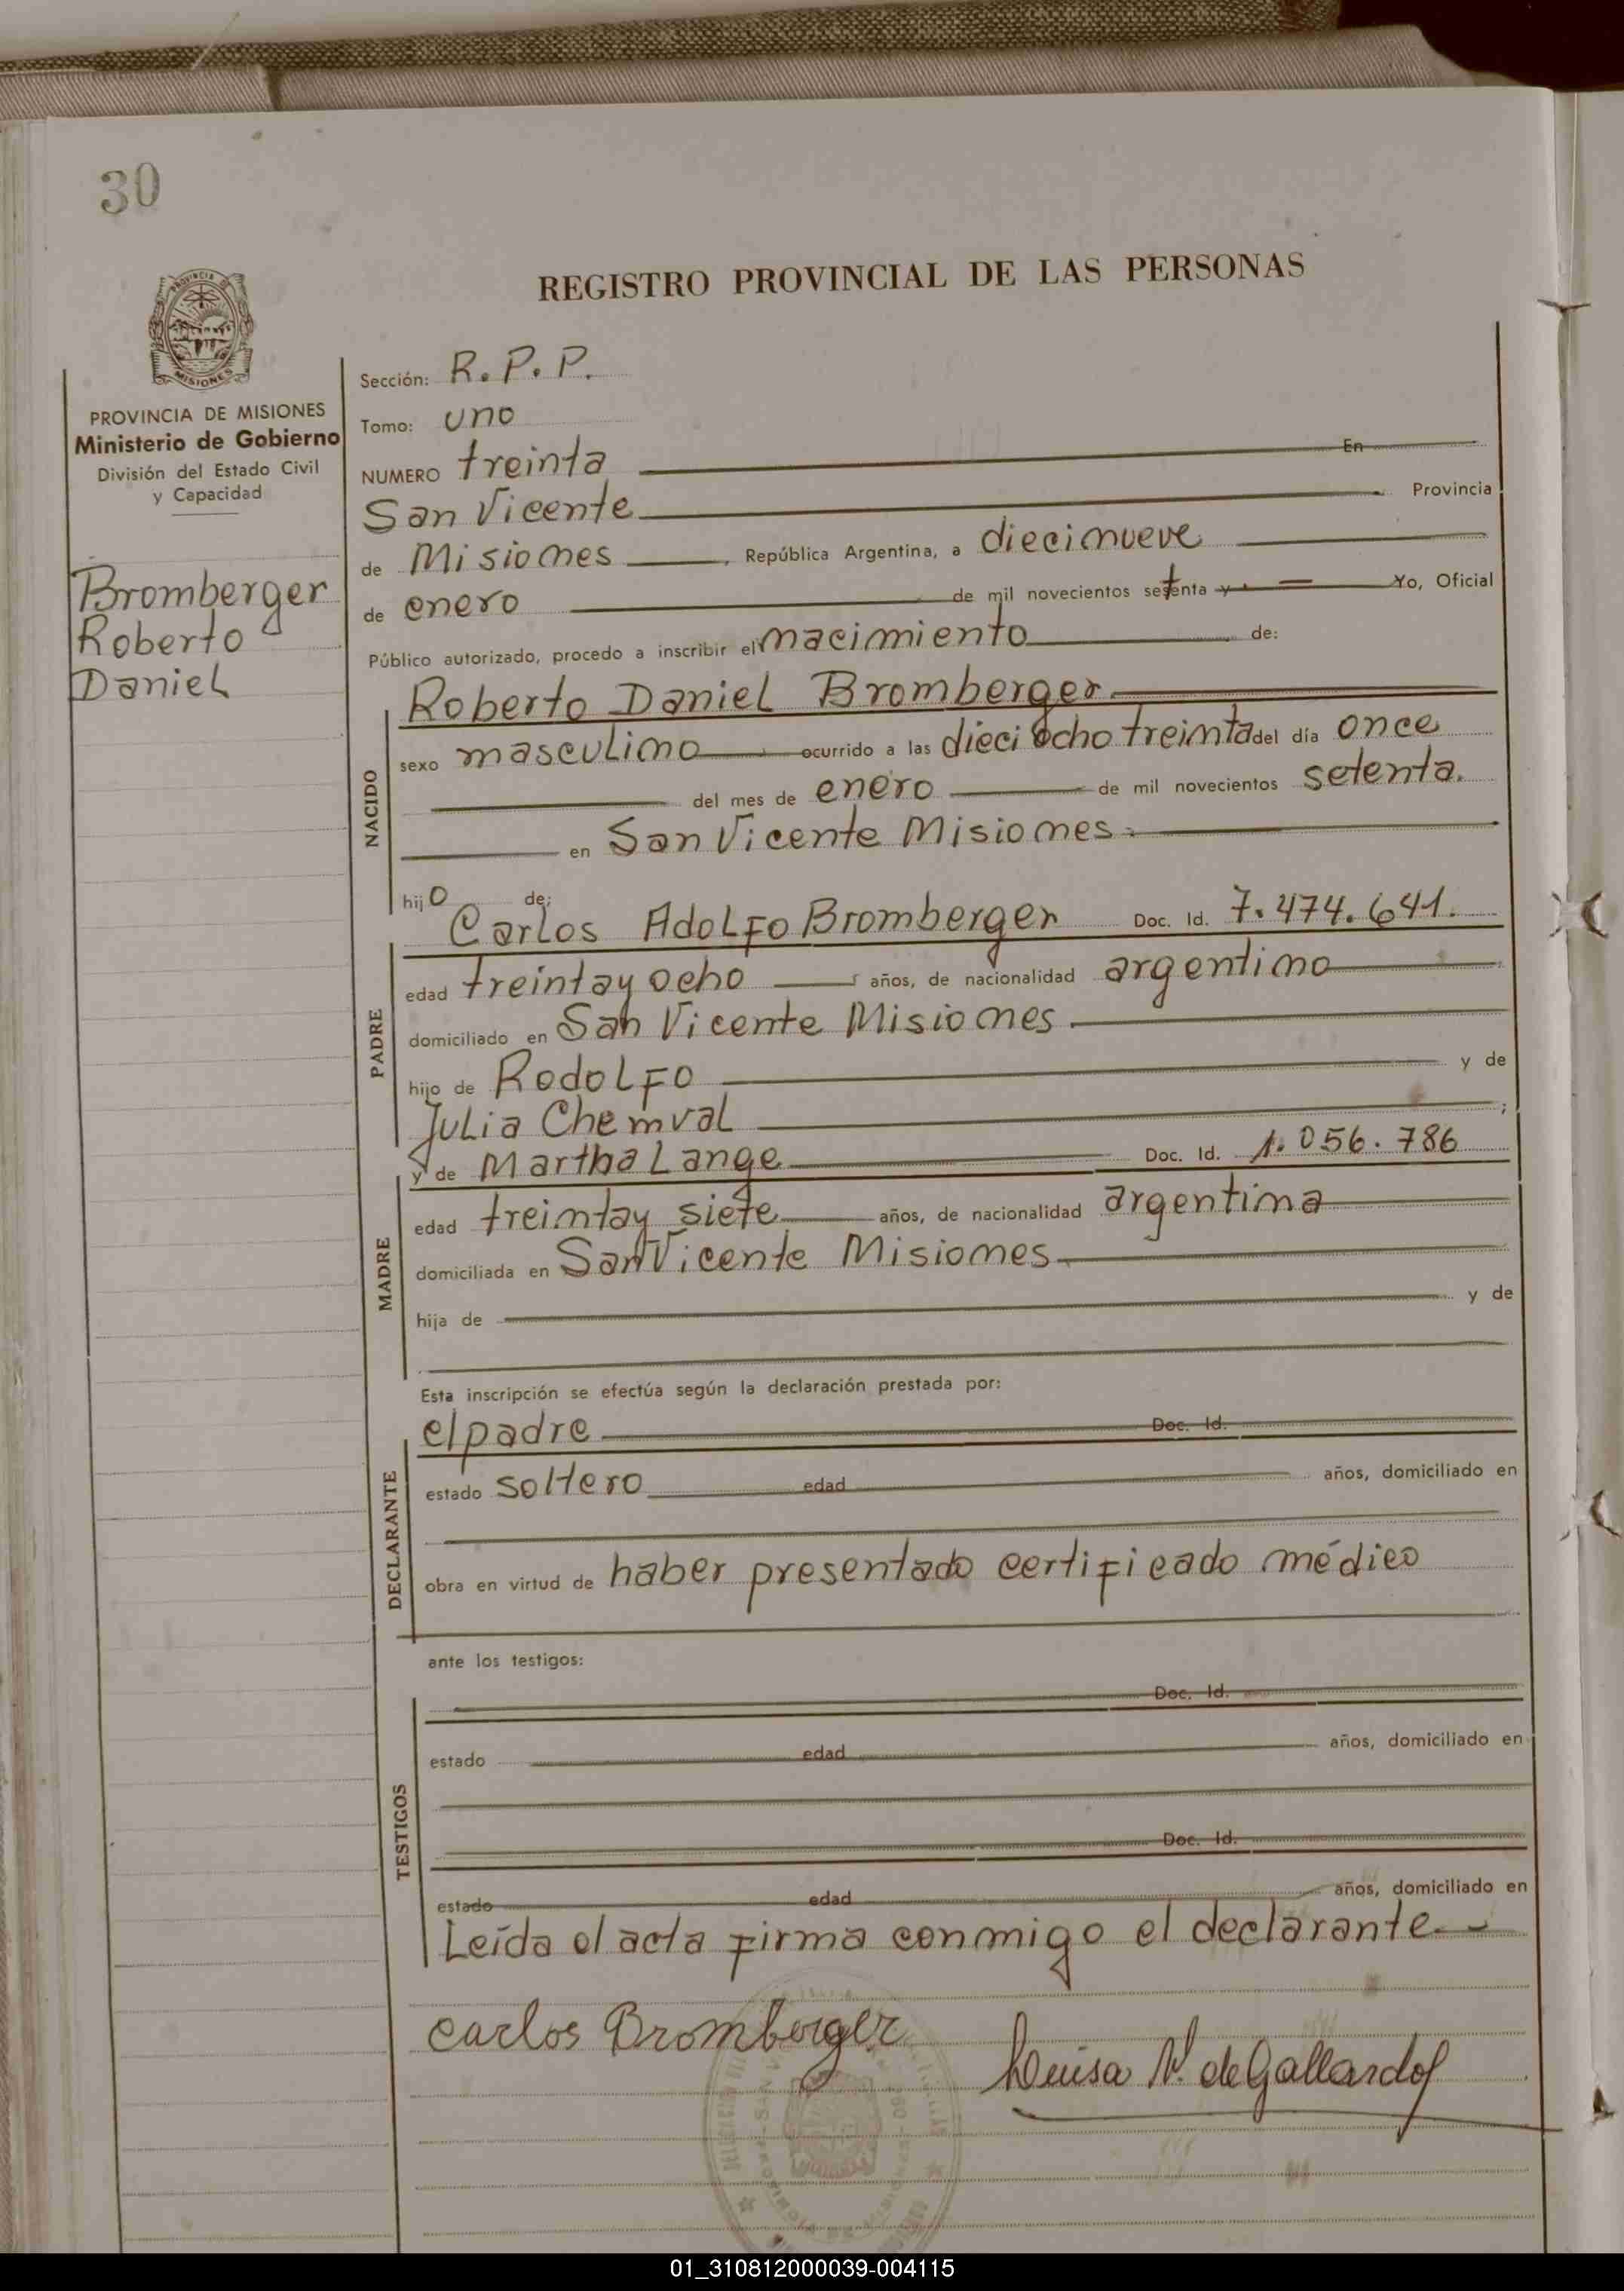 30
REGISTRO PROVINCIAL DE LAS PERSONAS
PROVINCIA
MISIONES
PROVINCIA DE MISIONES
Ministerio de Gobierno
División del Estado Civil
y Capacidad
Bromberger
Roberto
Daniel
Sección: R. P. P.
Tomo: uno
NUMERO treinta En
San Vicente Provincia
de Misiones, República Argentina, a diecinueve
de enero de mil novecientos setenta y Yo, Oficial
Público autorizado, procedo a inscribir el nacimiento de:
NACIDO
Roberto Daniel Bromberger
sexo masculino ocurrido a las dieciocho treinta del día once
del mes de enero de mil novecientos setenta.
en San Vicente Misiones.
hijo de;
PADRE
Carlos Adolfo Bromberger Doc. Id. 7.474.641.
edad treinta y ocho años, de nacionalidad argentino
domiciliado en San Vicente Misiones.
hijo de Rodolfo y de
Julia Chemval ;
MADRE
y de Martha Lange Doc. Id. 1.056.786
edad treinta y siete años, de nacionalidad argentina
domiciliada en San Vicente Misiones.
hija de y de
Esta inscripción se efectúa según la declaración prestada por:
DECLARANTE
el padre Doc. Id.
estado soltero edad años, domiciliado en
obra en virtud de haber presentado certificado médico
ante los testigos:
TESTIGOS
Doc. Id.
estado edad años, domiciliado en
Doc. Id.
estado edad años, domiciliado en
Leída el acta firma conmigo el declarante
Carlos Bromberger
Luisa N. de Gallardo
01_310812000039-004115